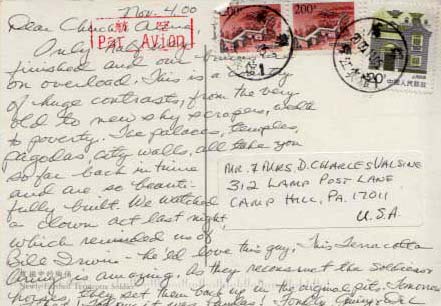 Nov. 4.00
Dear Chuck
Only
Par Avion
200
200
finished and our
on overload. This is a
of huge contrasts, from the very
old to new sky scrapers, wealth
to poverty. The palaces, temples,
pagodas, city walls, all take you
so far back in time
and are so beauti-
fully built. We watched
a clown act last night,
which reminded us of
Bill Irwin - he'd love this guy. This Terracotta
Army is amazing. As they reconstruct the soldiers
they set them back up in the original pits,
MR. & MRS. D. CHARLES VALSINE
312 LAMP POST LANE
CAMP HILL, PA. 17011
U.S.A
中国人民邮政